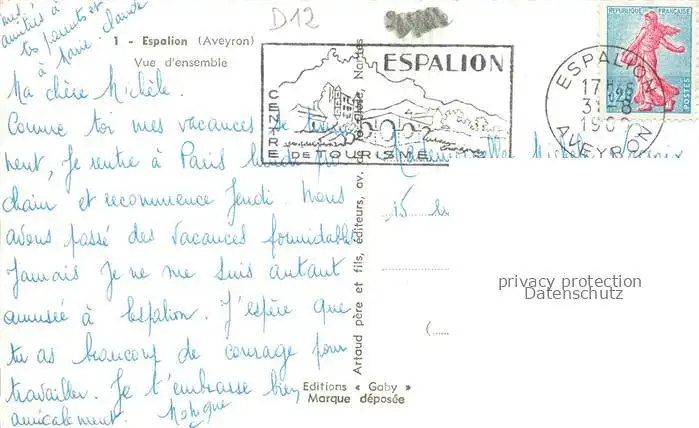 mes
amitiés à
tes parents et
à Marie-Claude
D12
1 - Espalion (Aveyron)
Vue d'ensemble
Ma chère Michèle.
Comme toi mes vacances se
nent, Je rentre à Paris lundi pro
chain et recommence Jeudi. Nous
avons passé des vacances formidables
Jamais Je ne me suis autant
amusée à Espalion. J'espère que
tu as beaucoup de courage pour
travailler. Je t'embrasse bien
amicalement. Monique
ESPALION
CENTRE
DE TOURISME
REPUBLIQUE FRANÇAISE
POSTES
ESPALION
17H
31-8
AVEYRON
Mademoiselle Michèle
15
Artaud père et fils, éditeurs, av. de Nantes
Editions « Gaby »
Marque déposée
privacy protection
Datenschutz